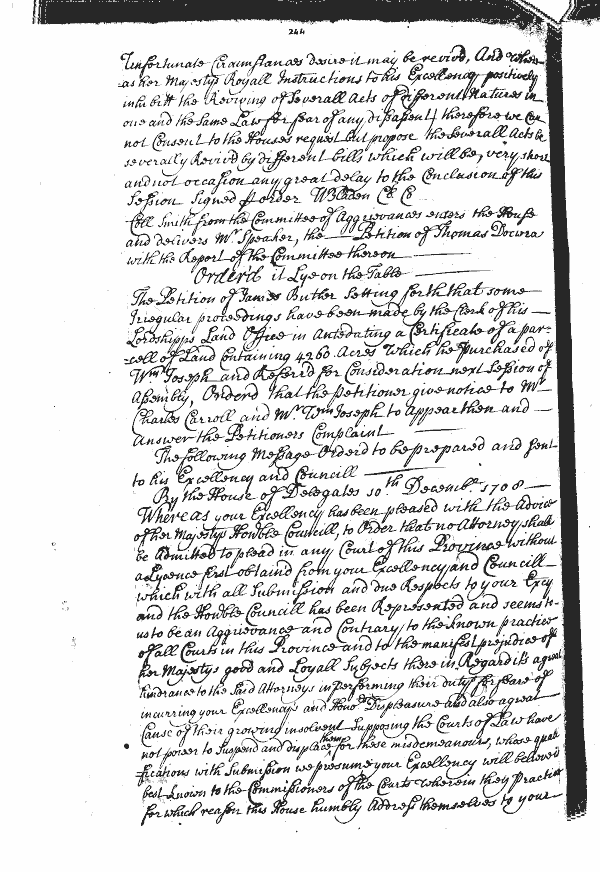 244
Unfortunate Circumstances desire it may be revivd, And where
-as her Majestys Royall Instructions to his Excellency positively
inhibitt the Reviving of Severall Acts of different Natures in
one and the Same Law for fear of any disassent, therefore we Can
not Consent to the Houses request but propose the severall Acts be
severally Revivd by different bills which will be, very short
and not occasion any great delay to the Conclusion of this
Session Signed p order W Bladen Cl: C
Coll Smith from the Committee of Aggrievances enters the House
and delivers Mr Speaker, the Petition of Thomas Docwra
with the Report of the Committee thereon
Orderd it Lye on the Table
The Petition of James Butler Setting forth that some
Irregular proceedings have been made by the Clerk of his
Lordshipps Land Office in Antedating a Certificate of a par-
-cell of Land Containing 4260 Acres which he Purchased of
Wm Joseph and Referd for Consideration next Session of
Assembly, Orderd That the petitioner give notice to Mr
Charles Carroll and Mr Wm Joseph to Appear then and
Answer the Petitioners Complaint
The following Message Orderd to be prepared and sent
to his Excellency and Councill
By the House of Delegates 10th Decembr 1708
Whereas your Excellency has been pleased with the Advice
of her Majestys Honble Councill, to Order that no Attorney shall
be Admitted to plead in any Court of this Province without
a Lycence first obtaind from your Excellency and Councill
which with all Submission and due Respects to your Excy
and the Honble Councill has been Represented and seems to
us to be an Aggrievance and Contrary to the known practice
of all Courts in this Province and to the manifest prejudice of
her Majestys good and Loyall Subjects there in Regard it's a great
hindrance to the Said Attorneys in performing their duty for feare of
incurring your Excellencys and Honrs Displeasure and also a great
Cause of their growing insolvent Supposing the Courts of Law have
not power to Suspend and displace them for these misdemeanours, whose quali
fications with Submission we presume your Excellency will believe
best known to the Commissioners of the Courts wherein they Practice
for which reason this House humbly Address themselves to your